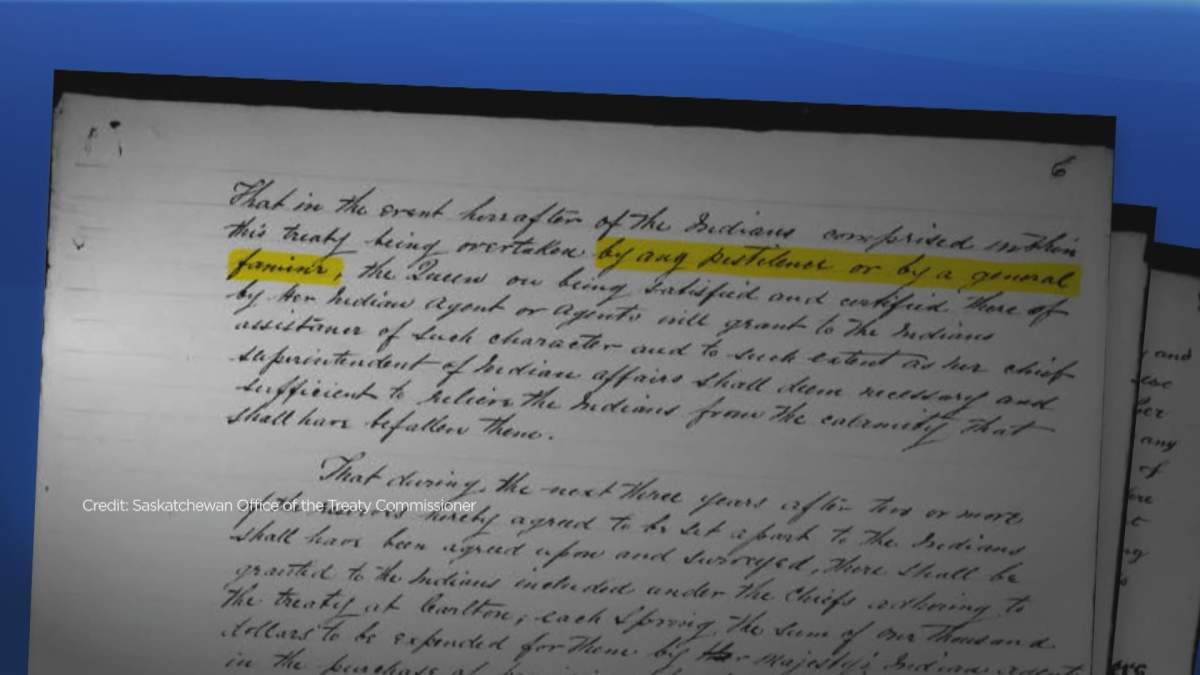 6
That in the event hereafter of the Indians comprised within
this treaty being overtaken by any pestilence or by a general
famine, the Queen on being satisfied and certified there of
by Her Indian Agent or Agents will grant to the Indians
assistance of such character and to such extent as her chief
superintendent of Indian affairs shall deem necessary and
sufficient to relieve the Indians from the calamity that
shall have befallen them.
That during the next three years after two or more
Credit: Saskatchewan Office of the Treaty Commissioner
of the reserves hereby agreed to be set apart to the Indians
shall have been agreed upon and surveyed, there shall be
granted to the Indians included under the Chiefs adhering to
the treaty at Carlton, each Spring, the sum of one thousand
dollars to be expended for them by Her Majesty's Indian Agent
in the purchase of
and
any
of